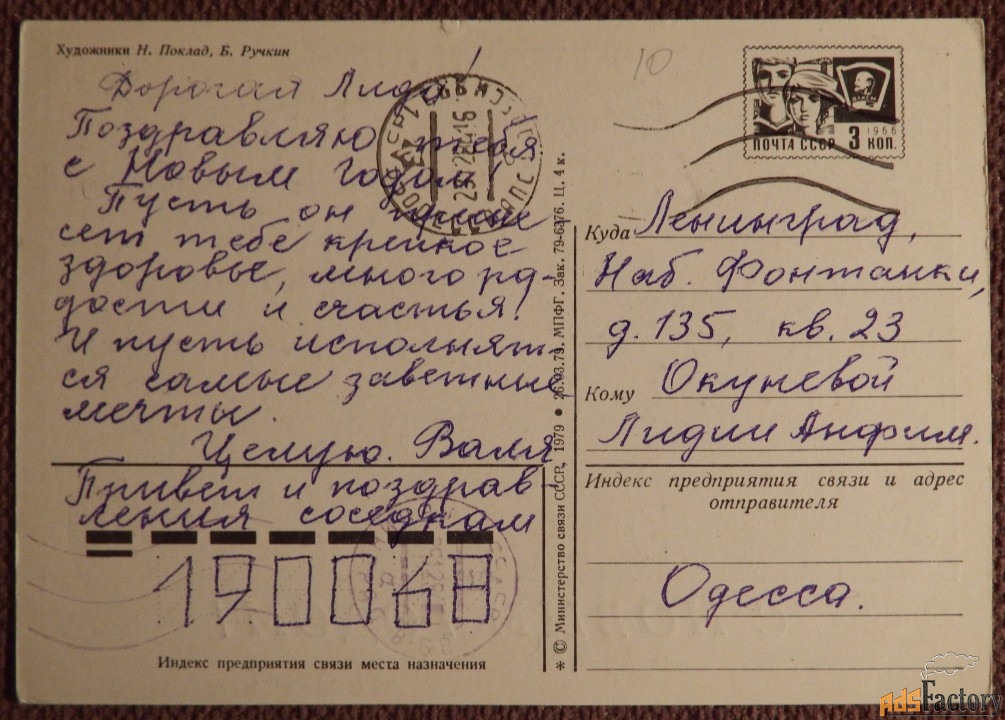 Художники Н. Поклад, Б. Ручкин
Дорогая Лида!
Поздравляю тебя
с Новым годом!
Пусть он прине
сет тебе крепкое
здоровье, много ра-
дости и счастья!
И пусть исполнят-
ся самые заветные
мечты.
Целую. Валя
Привет и поздрав
ления соседкам
190068
Индекс предприятия связи места назначения
* © Министерство связи СССР, 1979 • 26.03.79. МПФГ. Зак. 79-6376. Ц. 4 к.
10
ВЛКСМ
1966
ПОЧТА СССР 3 КОП.
Куда Ленинград,
Наб. Фонтанки,
д. 135, кв. 23
Кому Окуневой
Лидии Анфим.
Индекс предприятия связи и адрес
отправителя
Одесса.
AdsFactory